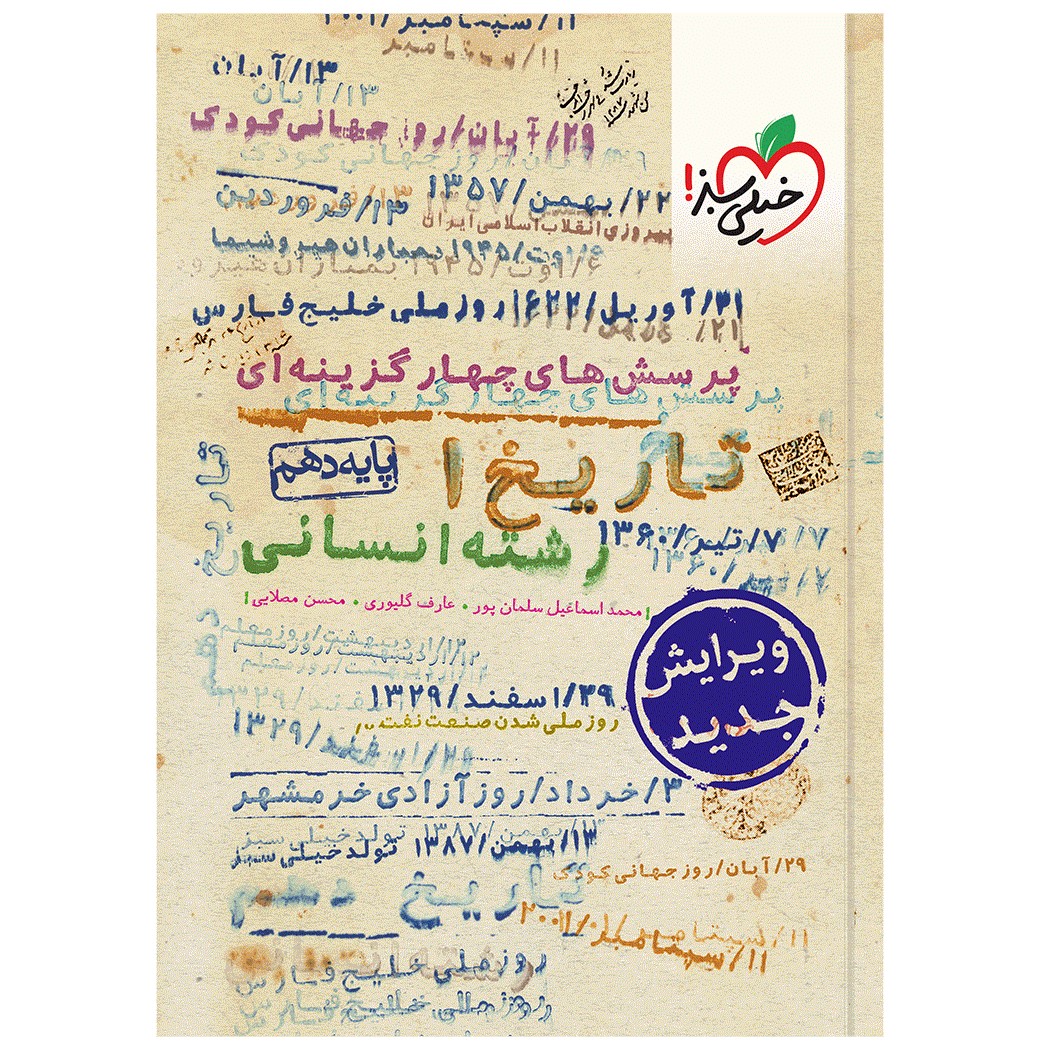 ۱۱/سپتامبر/۲۰۰۱
۱۱/سپتامبر
۱۳/آبان
۱۳/آبان
۲۹/آبان/روز جهانی کودک
۲۹/آبان/روز جهانی کودک
خیلی سبز!
۲۲/بهمن/۱۳۵۷
۱۳/فروردین
پیروزی انقلاب اسلامی ایران
۶/اوت/۱۹۴۵ بمباران هیروشیما
۶/اوت/۱۹۴۵ بمباران هیرو
۲۱/آوریل/۱۶۲۲ روز ملی خلیج فارس
پرسش های چهار گزینه ای
پرسش های چهار گزینه ای
تاریخ ۱
پایه دهم
تاریخ
رشته انسانی
۷/تیر/۱۳۶۰
۷/تیر/۱۳۶۰
محمد اسماعیل سلمان پور • عارف گلیوری • محسن مصلایی
ویرایش
جدید
۱۲/اردیبهشت/روز معلم
۱۲/اردیبهشت/روز معلم
۱۲/اردیبهشت/روز معلم
۲۹/اسفند/۱۳۲۹
روز ملی شدن صنعت نفت
۲۹/اسفند/۱۳۲۹
۳/خرداد/روز آزادی خرمشهر
۱۳/بهمن/۱۳۸۷ تولد خیلی سبز
۱۳/بهمن/۱۳۸۷ تولد خیلی سبز
۲۹/آبان/روز جهانی کودک
تاریخ دهم
۱۱/سپتامبر/۲۰۰۱
۱۱/سپتامبر/۲۰۰۱
روز ملی خلیج فارس
روز ملی خلیج فارس